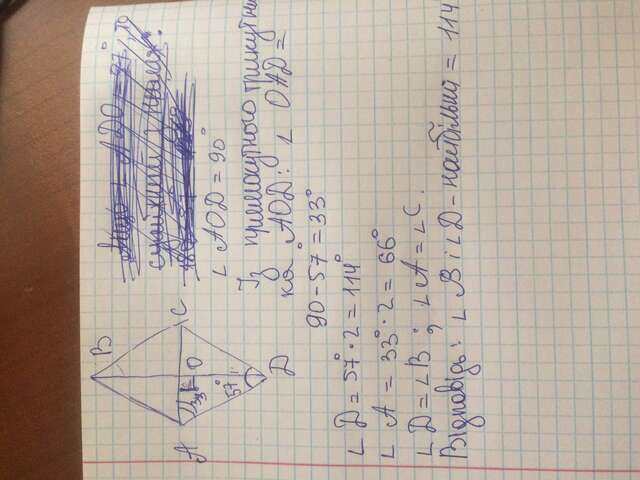 B
C
O
33°
57°
A
D
∠ AOD = 90°
Із прямокутного трикутни
ка AOD: ∠ OAD =
90 - 57° = 33°
∠ D = 57° · 2 = 114°
∠ A = 33° · 2 = 66°
∠ D = ∠ B ; ∠ A = ∠ C.
Відповідь: ∠ B і ∠ D - найбільші = 114